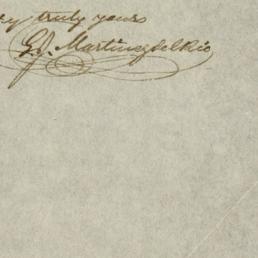 ry truly yours
G. J. Martinezdelkio